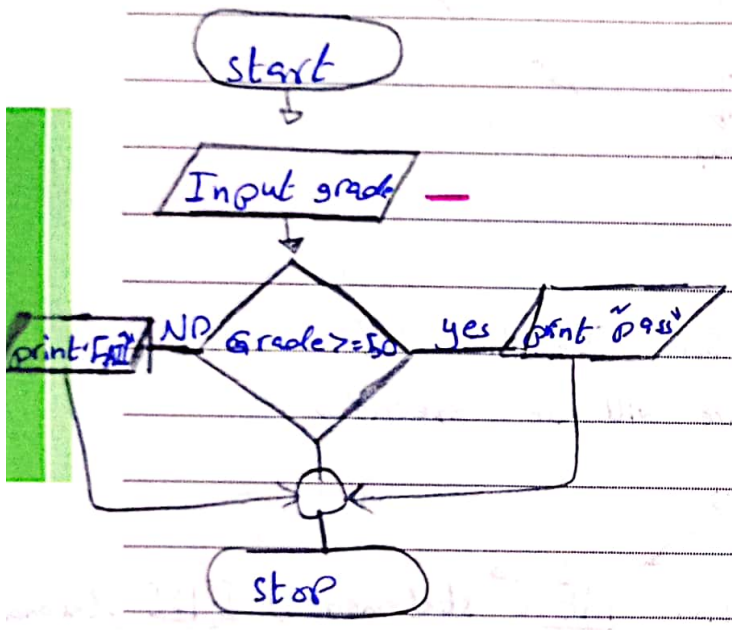 start
Input grade
print "FAII"
NO
Grade >= 50
yes
print "pass"
stop